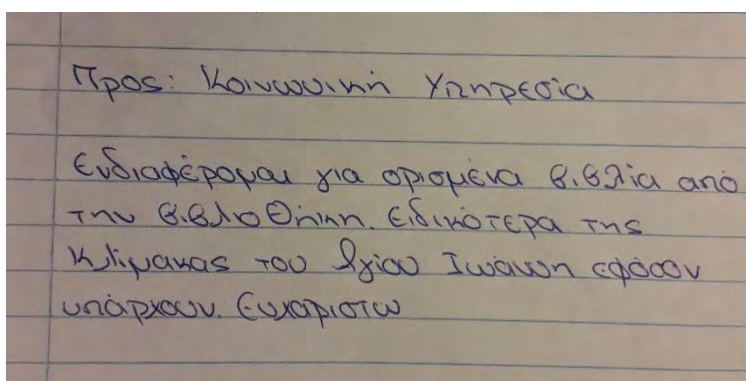 Προς: Κοινωνική Υπηρεσία
Ενδιαφέρομαι για ορισμένα βιβλία από
την βιβλιοθήκη. Ειδικότερα της
Κλίμακας του Αγίου Ιωάννη εφόσον
υπάρχουν. Ευχαριστώ